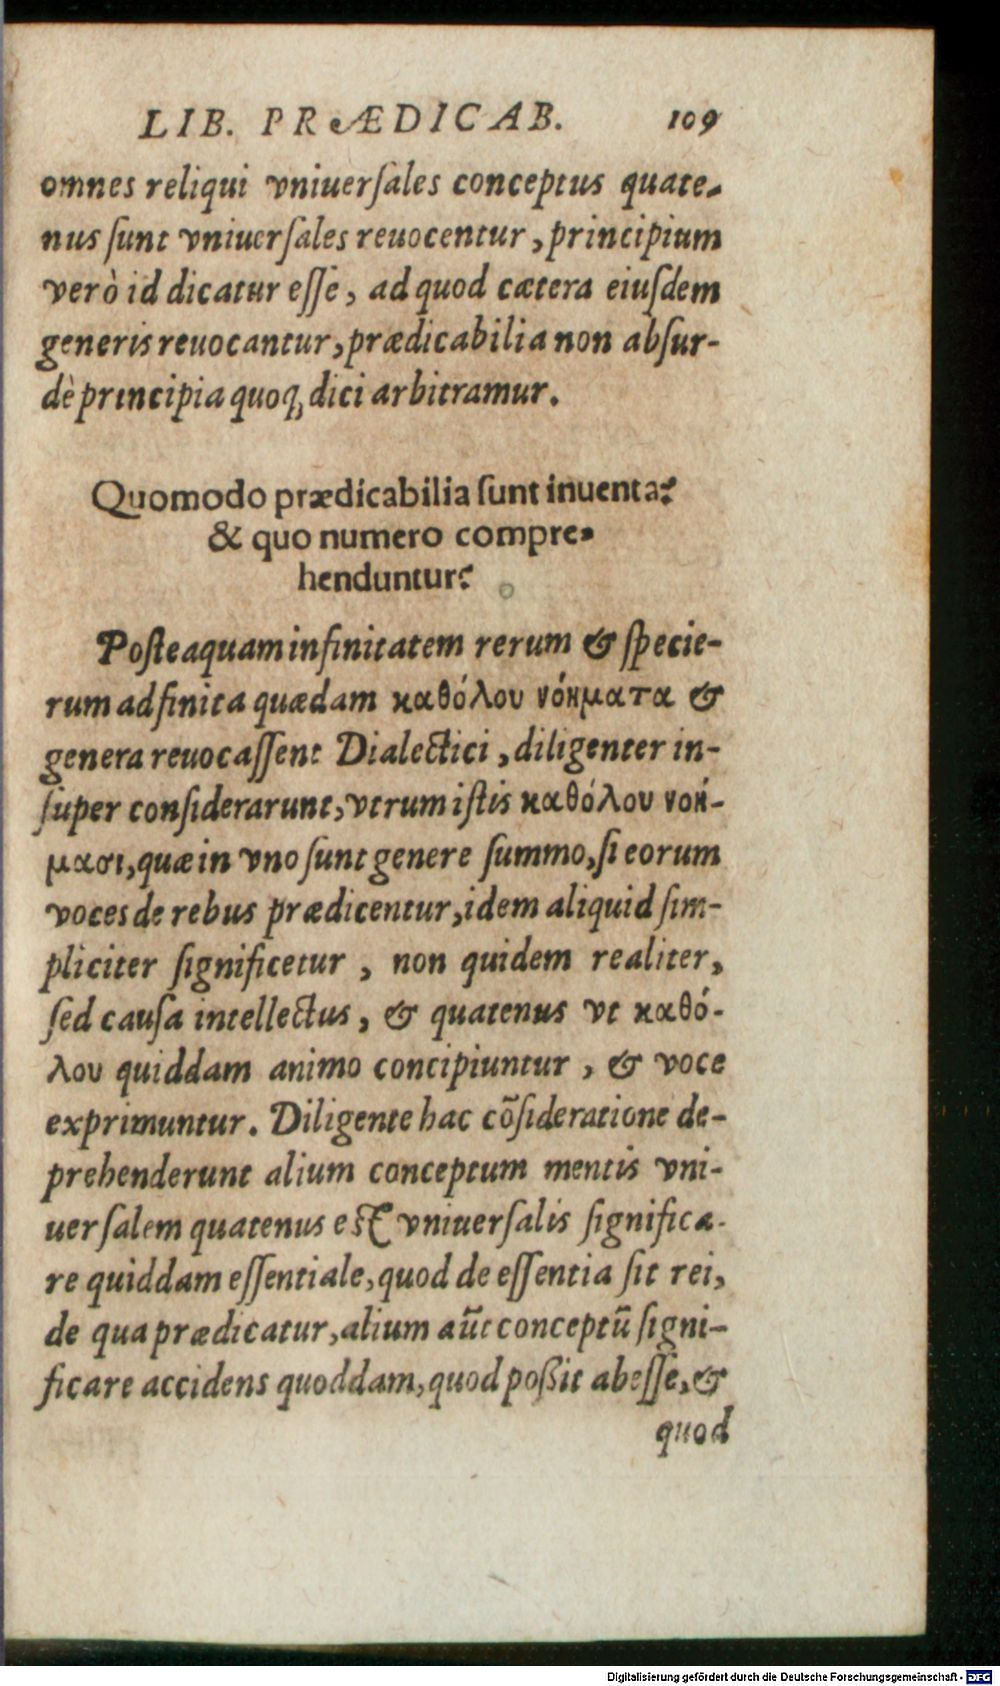 LIB. PRÆDICAB. 109
omnes reliqui vniuerſales conceptus quate-
nus ſunt vniuerſales reuocentur, principium
verò id dicatur eſſe, ad quod cætera eiuſdem
generis reuocantur, prædicabilia non abſur-
dè principia quoq; dici arbitramur.
Quomodo prædicabilia ſunt inuenta?
& quo numero compre-
henduntur?
Poſteaquam infinitatem rerum & ſpecie-
rum ad finita quædam καθόλου νόηματα &
genera reuocaſſent Dialectici, diligenter in-
ſuper conſiderarunt, vtrum iſtis καθόλου νοή-
μασι, quæ in vno ſunt genere ſummo, ſi eorum
voces de rebus prædicentur, idem aliquid ſim-
pliciter ſignificetur, non quidem realiter,
ſed cauſa intellectus, & quatenus vt καθό-
λου quiddam animo concipiuntur, & voce
exprimuntur. Diligente hac cōſideratione de-
prehenderunt alium conceptum mentis vni-
uerſalem quatenus eſt vniuerſalis ſignifica-
re quiddam eſſentiale, quod de eſſentia ſit rei,
de qua prædicatur, alium aūt conceptū ſigni-
ficare accidens quoddam, quod poßit abeſſe, &
quod
Digitalisierung gefördert durch die Deutsche Forschungsgemeinschaft - DFG